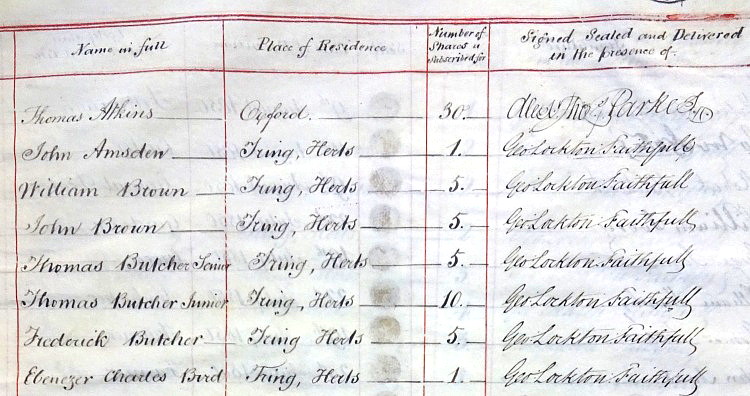 Name in full Place of Residence Number of Shares Subscribed for Signed Sealed and Delivered in the presence of
Thomas Atkins Oxford. 30. Parker
John Amsden Tring, Herts 1. Geo Lockton Faithfull
William Brown Tring, Herts 5. Geo Lockton Faithfull
John Brown Tring, Herts 5. Geo Lockton Faithfull
Thomas Butcher Senior Tring, Herts 5. Geo Lockton Faithfull
Thomas Butcher Junior Tring, Herts 10. Geo Lockton Faithfull
Frederick Butcher Tring Herts 5. Geo Lockton Faithfull
Ebenezer Charles Bird Tring, Herts 1. Geo Lockton Faithfull